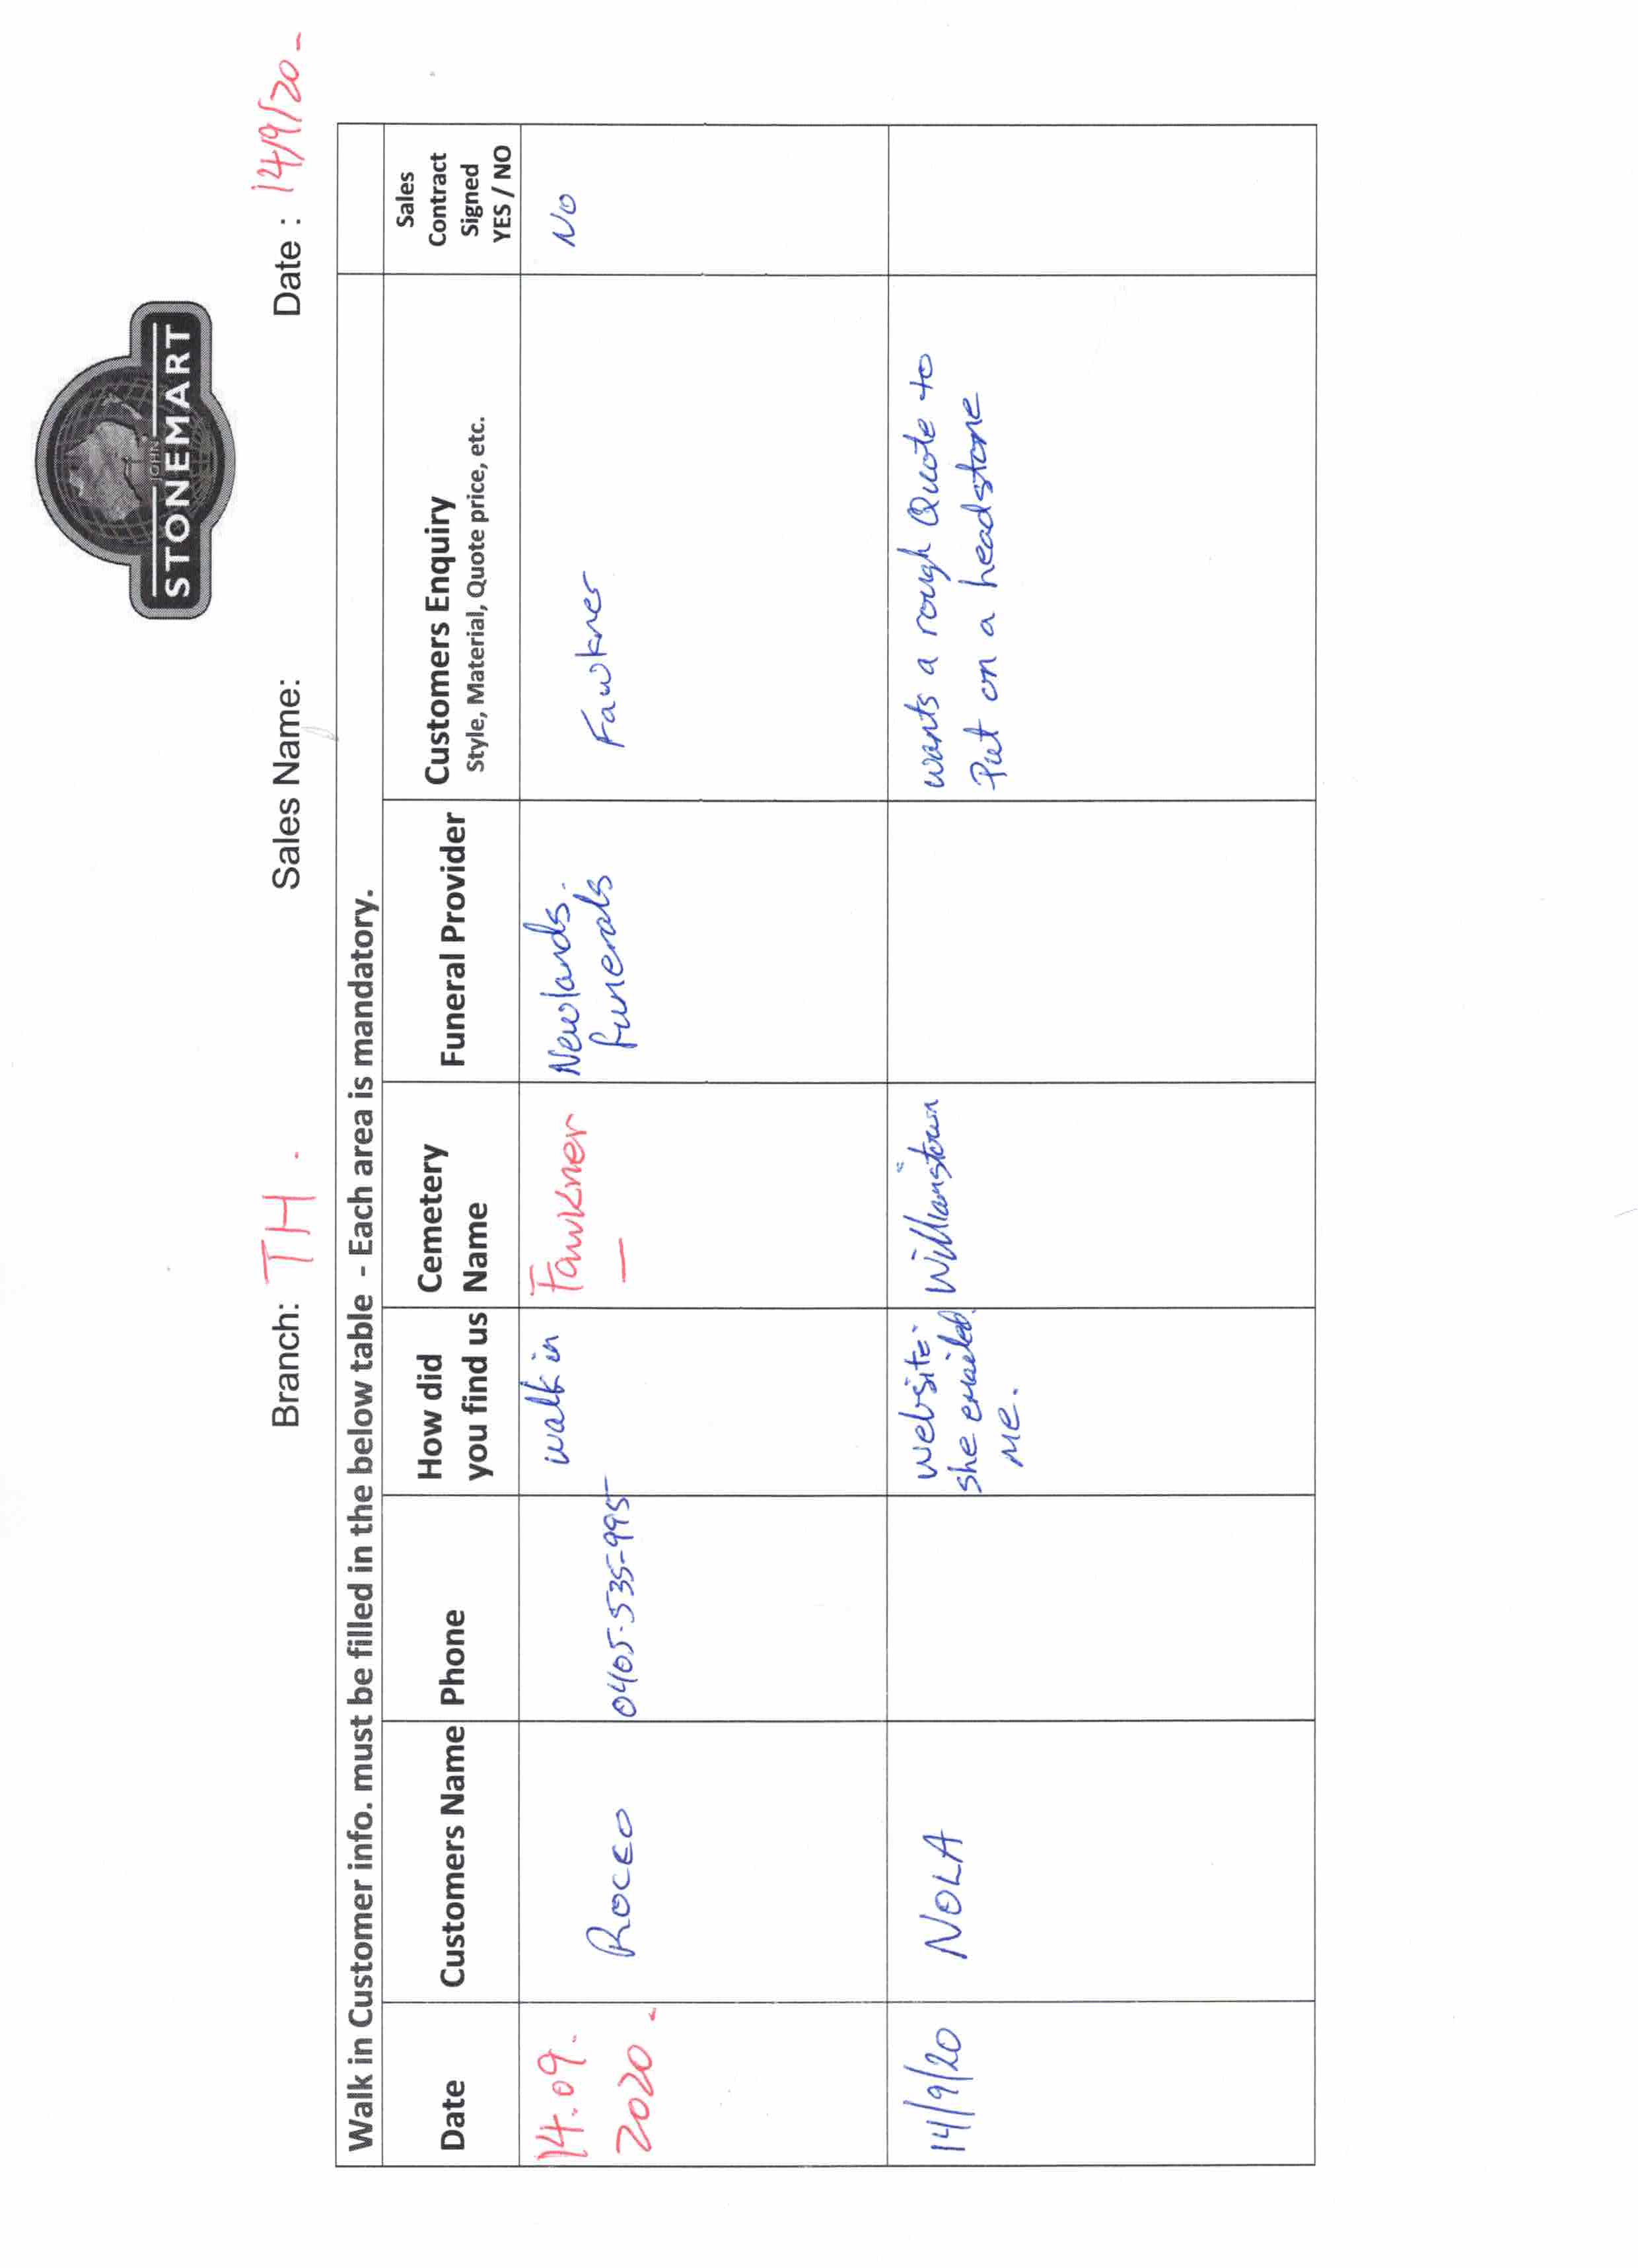 JOHN
STONEMART
Branch: TH. Sales Name: Date : 14/9/20 -
Walk in Customer info. must be filled in the below table - Each area is mandatory.
Date
Customers Name
Phone
How did
you find us
Cemetery
Name
Funeral Provider
Customers Enquiry
Style, Material, Quote price, etc.
Sales
Contract
Signed
YES / NO
14.09.
2020 -
Rocco
0405-535-995
walk in
Fawkner
Newlands.
funerals
Fawkner
No
14/9/20
NOLA
website.
she emailed
me.
Williamstown
wants a rough Quote to
Put on a headstone